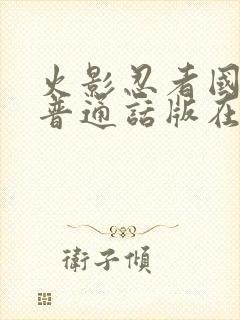 火影忍者國
普通話版在
衛子傾